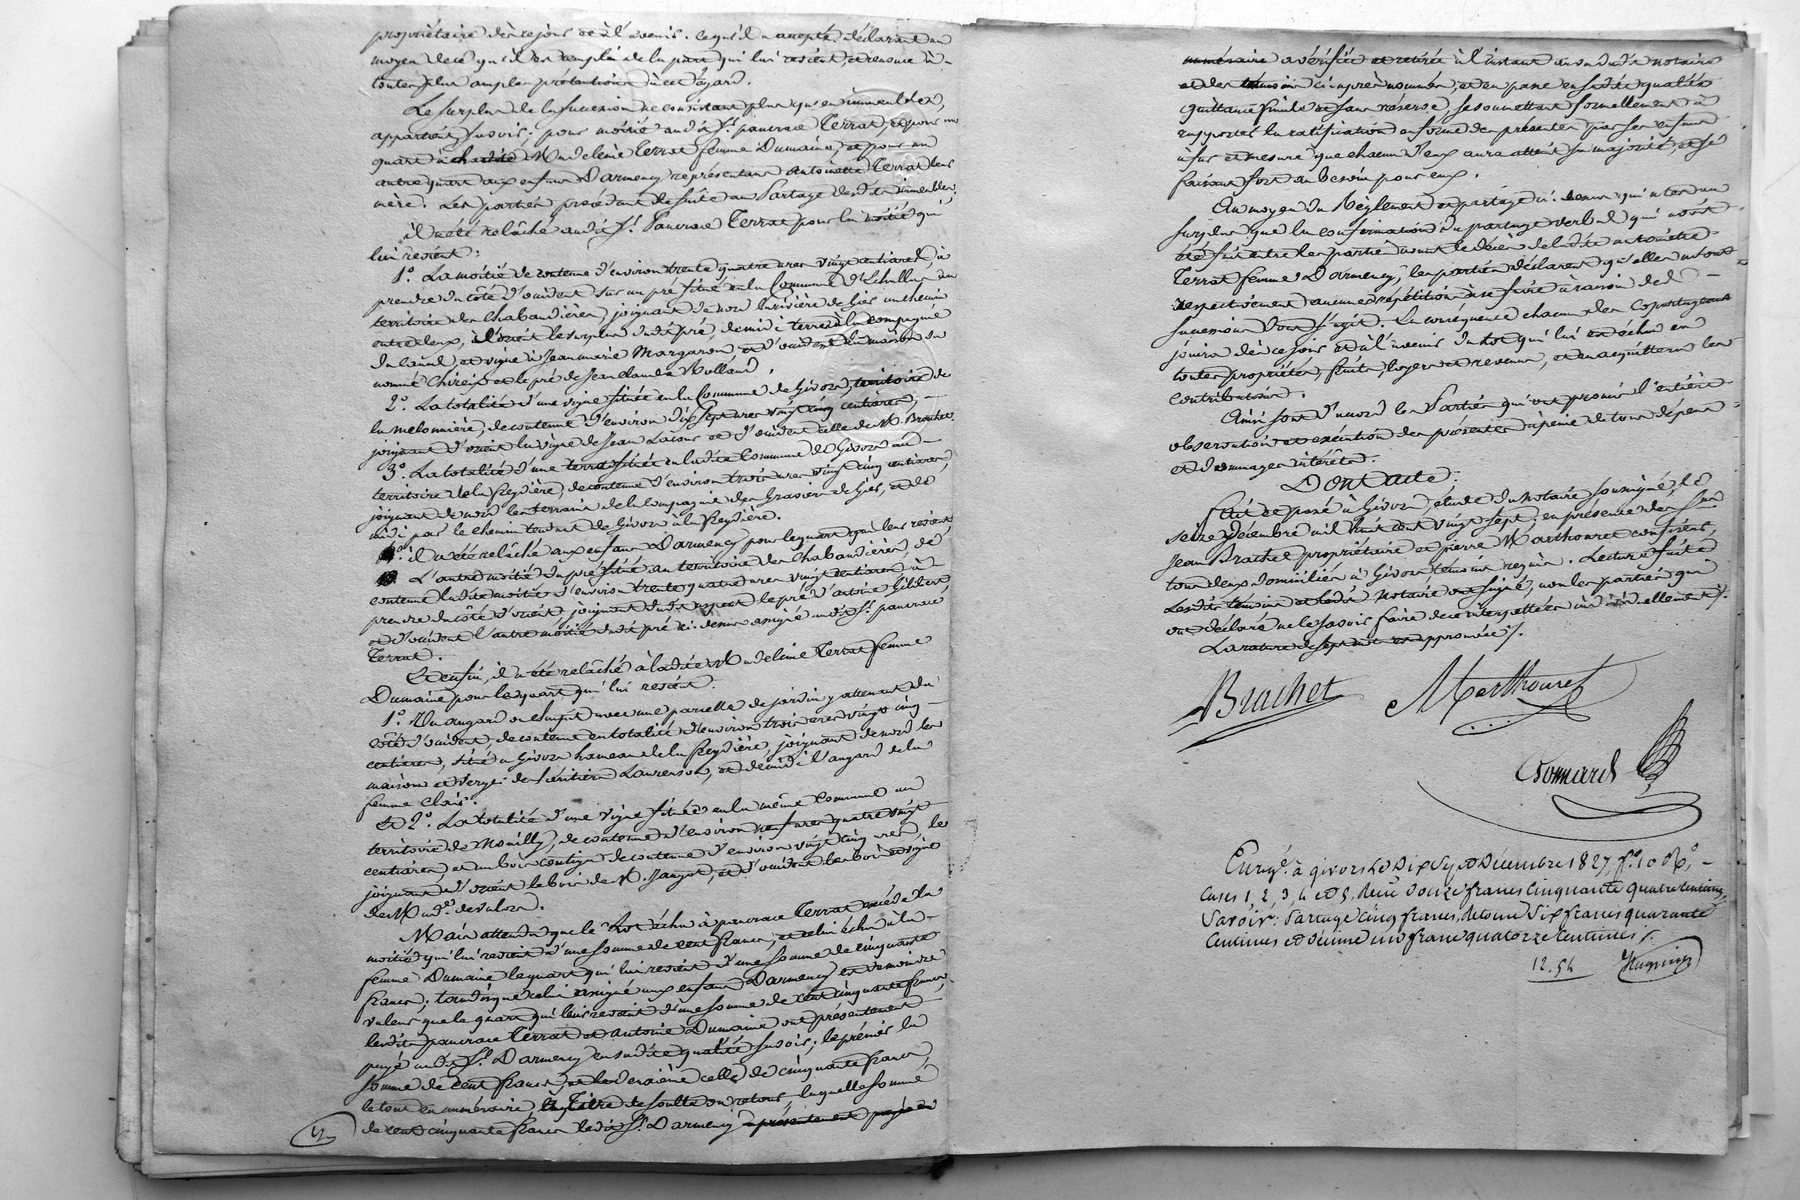 propriétaire dès ce jour et à l'avenir. ce qu'il a accepté déclarant au
moyen de ce qu'il est rempli de la part qui lui revient, et renonce à
toutes plus amples prétentions à cet égard.
Le surplus de la succession ne consistant plus qu'en immeubles,
appartient savoir; pour moitié audit Sr. pancrace Terrat, et pour un
quart à ladite Madeleine Terrat femme Dumaine, et pour un
autre quart aux enfans D'armency représentans Antoinette Terrat leur
mère. Les parties procédant de suite au Partage desdits immeubles.
il a été relâché audit Sr. Pancrace Terrat pour la moitié qui
lui revient:
1°. La moitié de contenue d'environ trente quatre ares vingt centiares, à
prendre du côté d'occident sur un pré situé en la Commune d'Echallas au
territoire des Chabaudières, joignant de nord la rivière de Gier un chemin
entre deux, d'orient le surplus dudit pré, de midi terres à la compagnie
du canal et vigne à Jean marie Margaron et d'occident la maison du
nommé Chirizis et le pré de Jean Claude Rolland.
2°. La totalité d'une vigne située en la Commune de Givors, territoire de
la melonnière, de contenue d'environ dix sept ares vingt cinq centiares,
joignant d'orient la vigne de Jean Latour et d'occident celle de M. Brachet
3°. La totalité d'une terre située en ladite Commune de Givors au
territoire de la freydière, de contenue d'environ trois ares vingt cinq centiares,
joignant de nord les terrains de la compagnie des Gravier de Gier, et de
midi par le chemin tendant de Givors à la freydière.
il a été relâché aux enfans D'armency pour le quart qui leur revient,
L'autre moitié du pré situé au territoire des Chabaudières, de
contenue ladite moitié d'environ trente quatre ares vingt centiares à
prendre du côté d'orient, joignant dudit aspect le pré d'antoine Gilibert
et d'occident l'autre moitié dudit pré ci-dessus assigné audit Sr. pancrace
Terrat.
Et enfin, il a été relâché à ladite Madeleine Terrat femme
Dumaine pour le quart qui lui revient.
1°. Un angard ou suspit avec une parcelle de jardin y attenant du
côté d'occident, de contenue en totalité d'environ trois ares vingt cinq
centiares, situé à Givors hameau de la freydière, joignant de nord les
maison et verger de héritiers Laurenson, et de midi l'angard de la
femme Clair.
et 2°. La totalité d'une vigne située en la même commune au
territoire de Mouilly, de contenue d'environ neuf ares quatre vingt
centiares, et un bois contigu de contenue d'environ vingt cinq ares, le
joignant d'orient le bois de M. Jangot, et d'occident les bois et vigne
de M. de valors.
Mais attendu que le Lot échu à pancrace Terrat excède la
moitié qui lui revient d'une somme de cent francs, et celui échu à la
femme Dumaine le quart qui lui revient d'une somme de cinquante
francs; tandis que celui assigné aux enfans D'armency est de moindre
valeur que le quart qui leur revient d'une somme de cent cinquante francs,
lesdits pancrace Terrat et antoine Dumaine ont présentement
payé audit Sr. D'armency en sadite qualité savoir; le premier la
somme de cent francs, et le deuxième celle de cinquante francs,
le tout en numéraire, à titre de soulte ou retour, laquelle somme
de cent cinquante francs ledit Sr. D'armency a présentement payée en
numéraire a vérifiée et retirée à l'instant au vu dudit notaire
et des témoins ci après nommés, et en passe en sadite qualité
quittance finale et sans réserve, se soumettant formellement à
rapporter la ratification en forme des présentes par ses enfans
à fur et mesure que chacun d'eux aura atteint sa majorité, et se
faisant fort au besoin pour eux.
Au moyen du Règlement et partage ci-dessus qui n'est au
surplus que la confirmation du partage verbal qui avoit
été fait entre les parties avant le décès de ladite antoinette
Terrat femme D'armency, les parties déclarent qu'elles n'ont
respectivement aucunes répétitions à se faire à raison des
successions dont s'agit. En conséquence chacun des Copartageans
jouira dès ce jour et à l'avenir du lot qui lui est échu en
toutes propriétés, fruits, loyers et revenus, et en acquittera les
contributions.
Ainsi sont d'accord les Parties qui ont promis l'entière
observation et exécution des présentes à peine de tous dépens
et dommages intérêts.
Dont acte:
fait et passé à Givors, étude du Notaire soussigné, le
seize Décembre mil huit cent vingt sept; en présence des Srs.
Jean Brachet propriétaire et pierre Marthouret confiseur,
tous deux domiciliés à Givors, témoins requis. Lecture faite
lesdits témoins et ledit Notaire ont signé, non les parties qui
ont déclaré ne le savoir faire de ce interpellées individuellement /.
La rature de sept mots est approuvée /.
Brachet Marthouret
Cosmard
Enregé. à givors le Dix Sept Décembre 1827, fo. 10 Ro.,
Cases 1, 2, 3, 4 et 5. Reçu Douze francs Cinquante quatre centimes,
Savoir: Partage Cinq francs, Retour Six francs quarante
Centimes et décime un franc quatorze Centimes /.
12.54